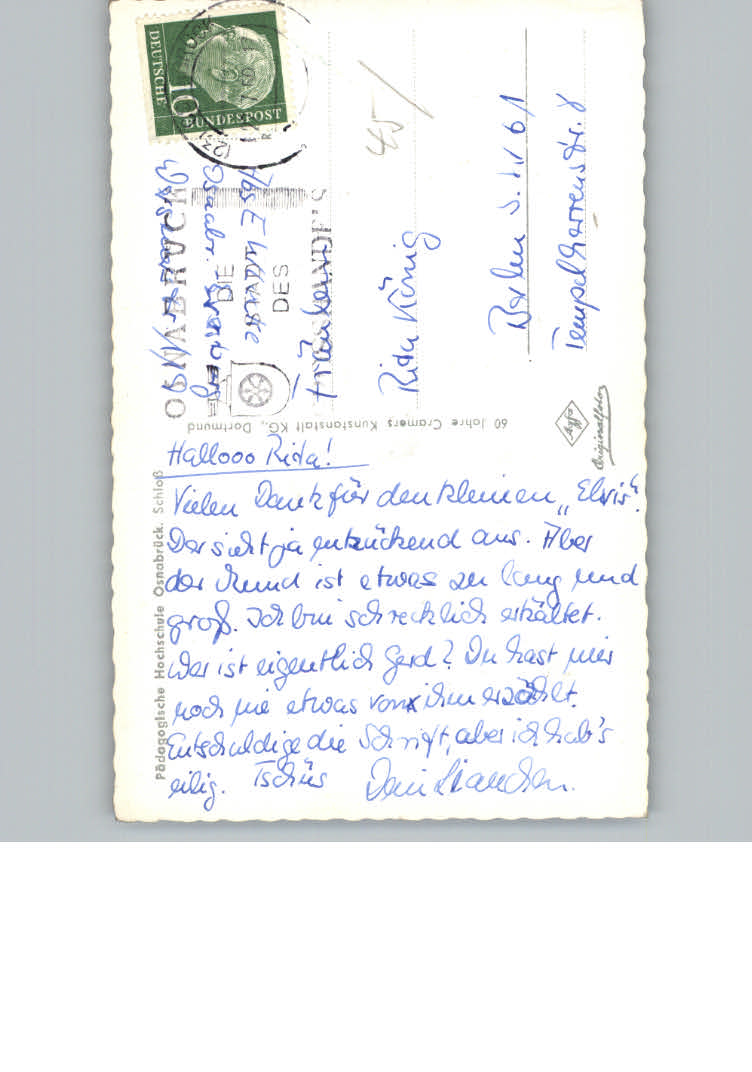 Hallooo Rita!
Vielen Dank für den kleinen „Elvis".
Der sieht ja entzückend aus. Aber
der Mund ist etwas zu lang und
groß. Ich bin schrecklich erkältet.
Wer ist eigentlich Gerd? Du hast mir
noch nie etwas von ihm erzählt.
Entschuldige die Schrift, aber ich hab's
eilig. Tschüs Dein
Pädagogische Hochschule Osnabrück. Schloß
60 Jahre Cramers Kunstanstalt KG., Dortmund
Agfa
Originalfoto
DEUTSCHE
10
BUNDESPOST
OSNABRÜCK
DIE
DES
Abs. E.
Osnabr.
45/
Rita König
Berlin S.W 61
Tempelherrenstr. 8